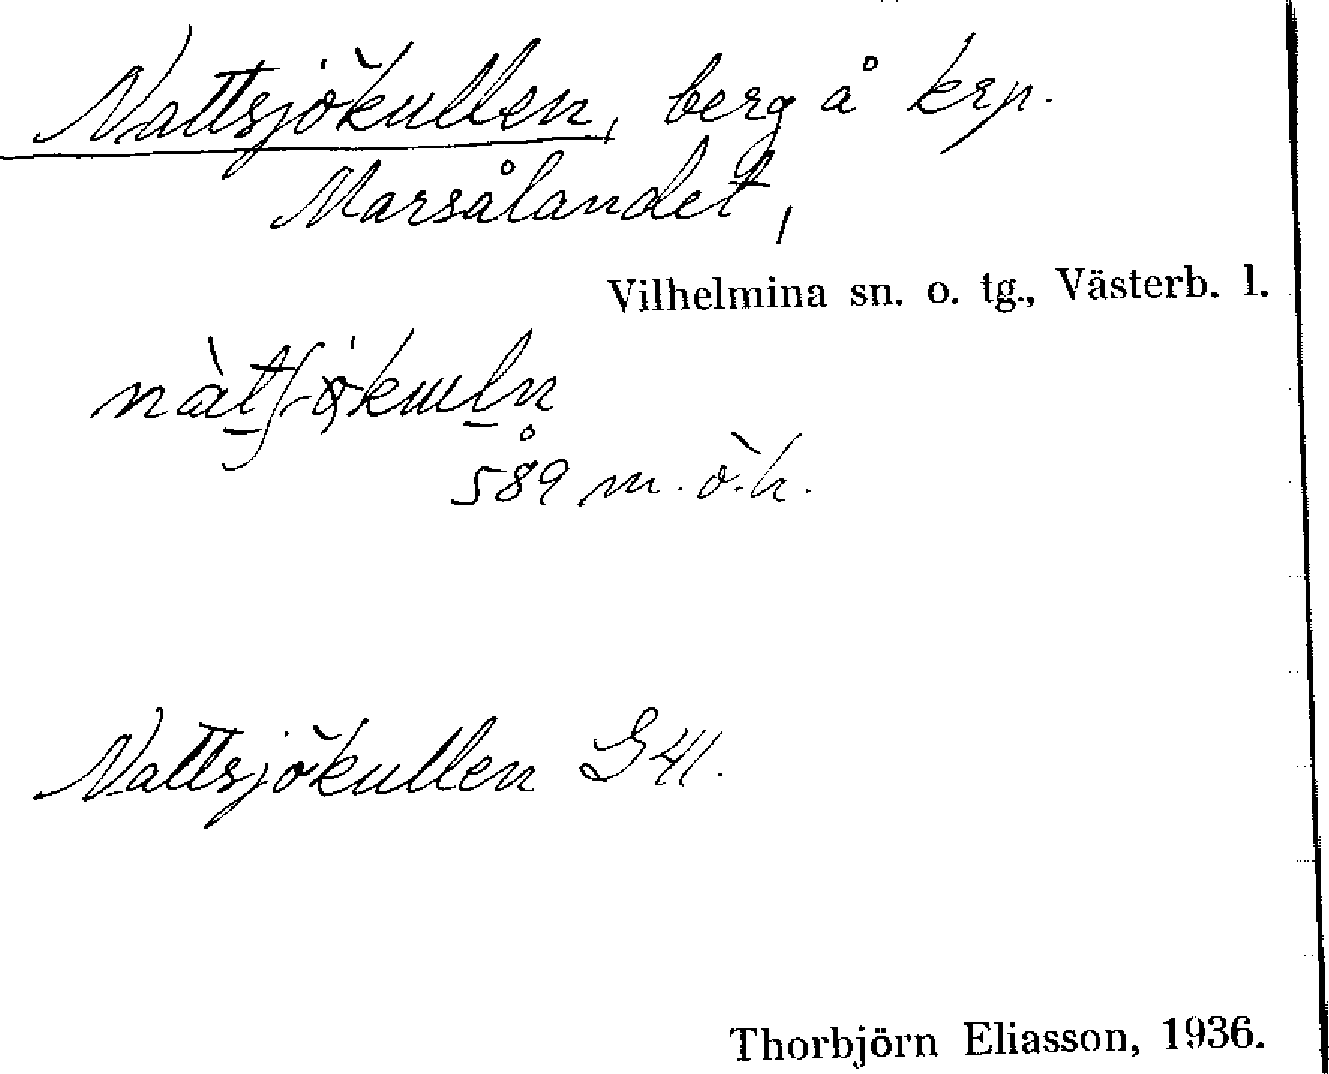 Nattsjökullen, berg å krp.
Marsålandet,
Vilhelmina sn. o. tg., Västerb. l.
589 m.ö.h.
Nattsjökullen G 41.
Thorbjörn Eliasson, 1936.